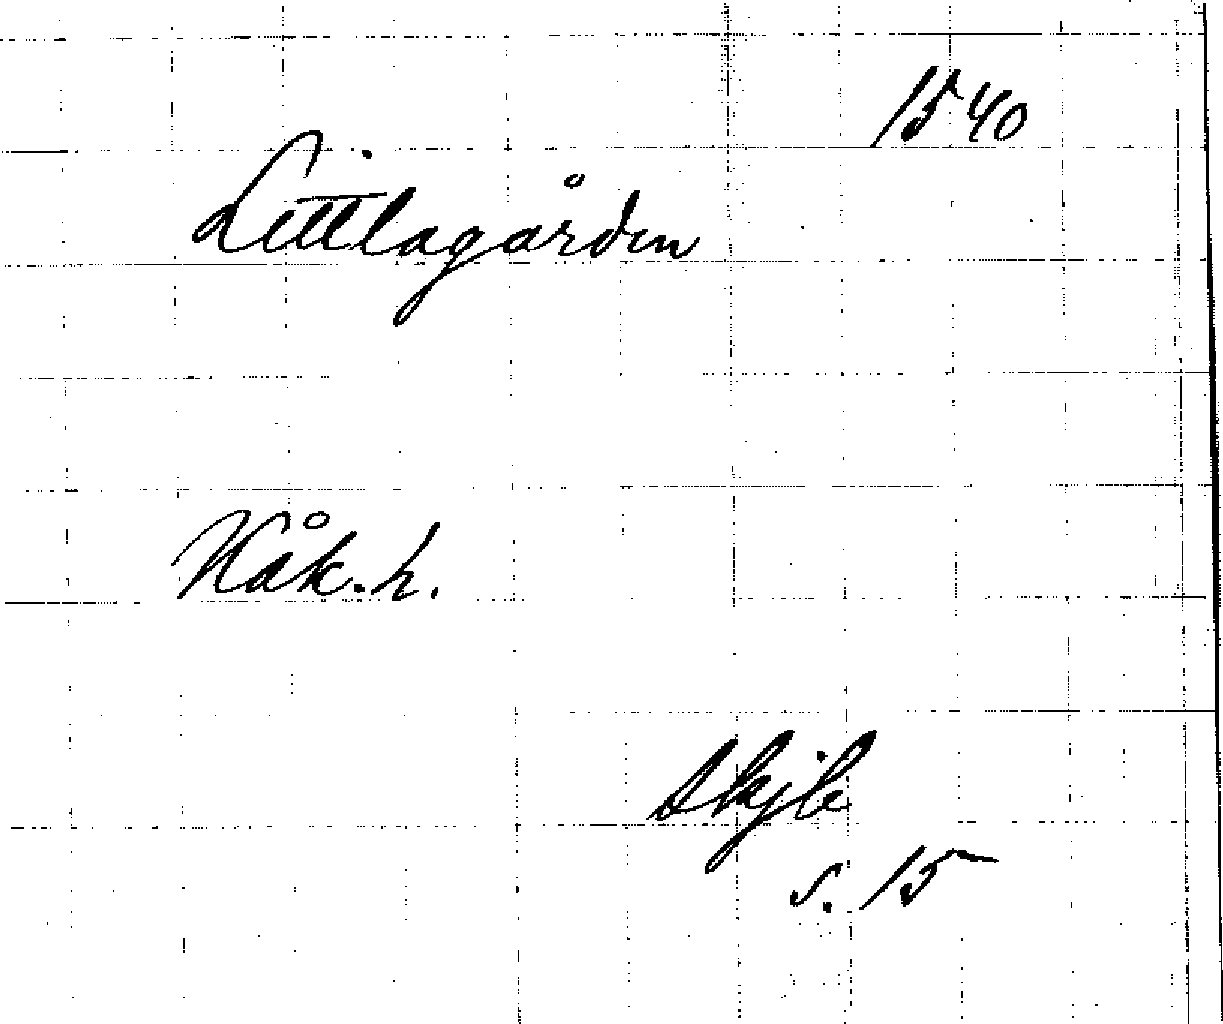 1540
Littlagården
Håk. h.
Skjb
s. 15